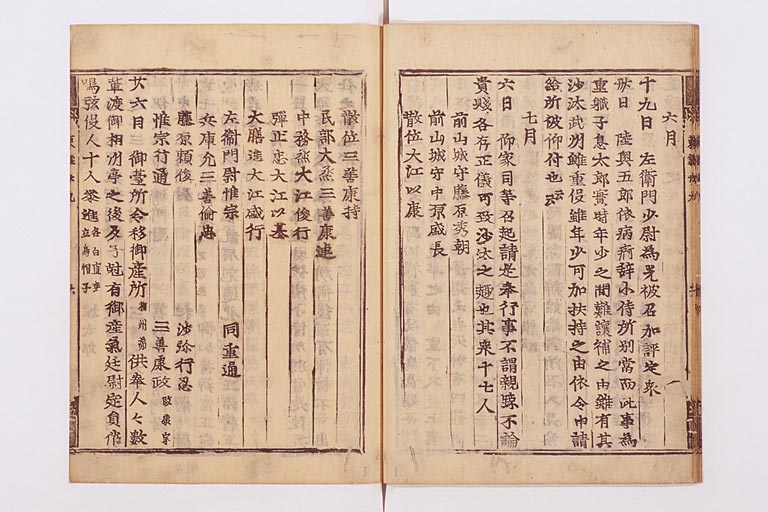 六月
十九日 左衛門少尉為光被召加評定衆
廿日 陸奥五郎依病痾辞小侍所別當而此事為
重職子息太郎實時年少之間難譲補之由雖有其
沙汰武州雖重役雖年少可加扶持之由依令申請
給所被仰付也云云
七月
六日 仰家司等召起請是奉行事不謂親踈不論
貴賤各存正儀可致沙汰之趣也其衆十七人
前山城守藤原秀朝
前山城守中原盛長
散位大江以康
散位三善康持
民部大丞三善康連
中務丞大江俊行
彈正忠大江以基
大膳進大江盛行
左衛門尉惟宗 同重通
兵庫允三善倫忠
藤原頼俊 沙弥行忍
惟宗行通 三善康政
廿六日 御臺所令移御産所相州第供奉人々數
輩渡御相州亭之後及子尅有御産氣廷尉定員催
鳴弦役人十人參進各白直垂立烏帽子